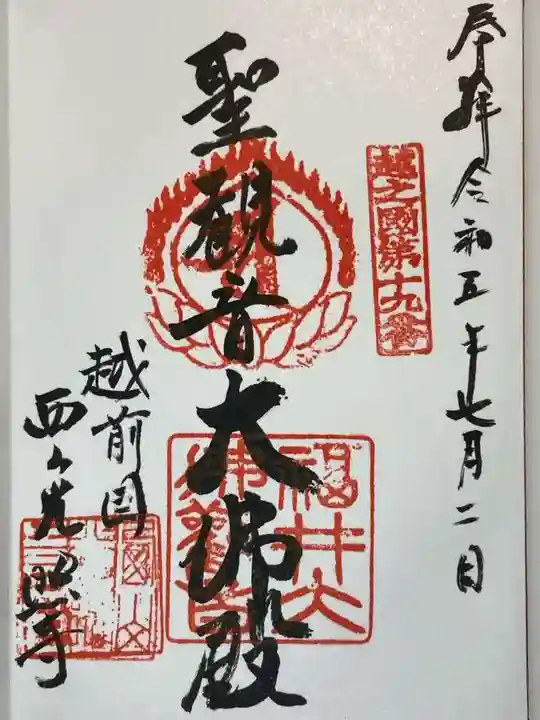 奉拝 令和五年七月二日
越之國第十九番
聖観音大佛殿
福井大佛観音
越前国
西山光照寺